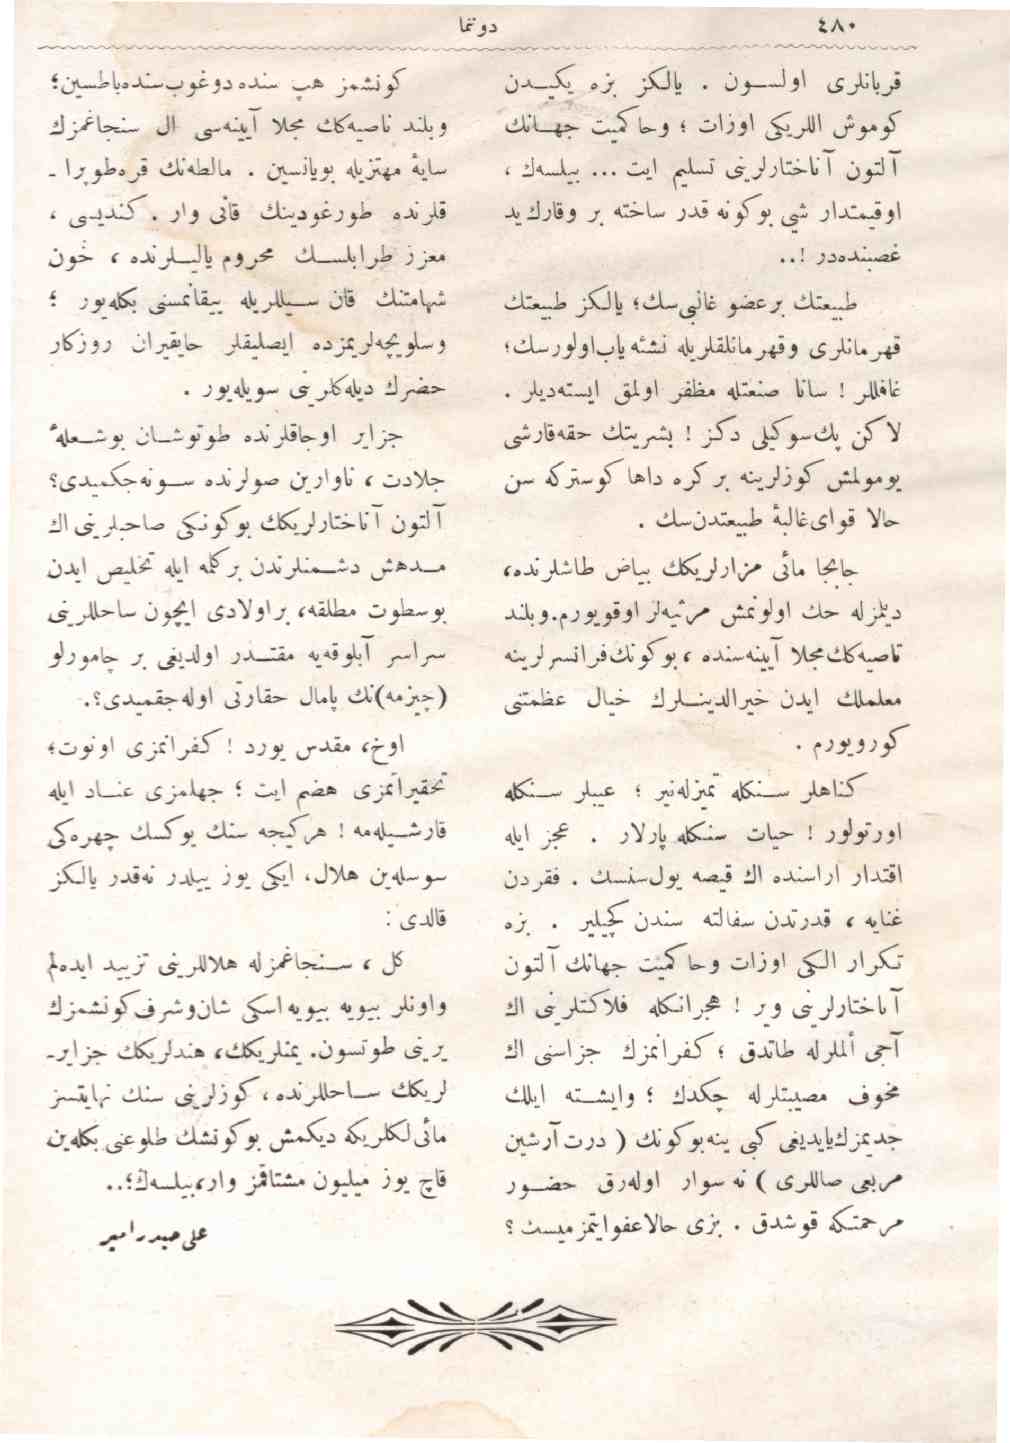 ٤٨٠
دوننما
قربانلری اولسون . یالکز بزه یکیدن
کوموش اللریکی اوزات ؛ وحاکمیت جهانك
آلتون آناختارلرینی تسلیم ایت ... بیلسه‌ك ،
اوقیمتدار شیٔ بوکونه قدر ساخته بر وقارك ید
غصبنده‌در !..
طبیعتك برعضو غالبی‌سك؛ یالکز طبیعتك
قهرمانلری وقهرمانلقلریله نشئه‌یاب اولورسك؛
غافللر ! سانا صنعتله مظفر اولمق ایسته‌دیلر .
لاکن پك سوکیلی دکز ! بشریتك حقه‌قارشی
یومولمش کوزلرینه بر کره داها کوسترکه سن
حالا قوای‌غالبهٔ طبیعتدن‌سك .
جابجا مائی مزارلریکك بیاض طاشلرنده،
دیلمزله حك اولونمش مرثیه‌لر اوقویورم.وبلند
ناصیه‌كك مجلا آیینه‌سنده ، بوکونك فرانسزلرینه
معلملك ایدن خیرالدینلرك خیال عظمتنی
کورویورم .
کناهلر سنكله تمیزله‌نیر ؛ عیبلر سنكله
اورتولور ! حیات سنكله پارلار . عجز ایله
اقتدار اراسنده اك قیصه یول‌سنسك . فقردن
غنایه ، قدرتدن سفالته سندن کچیلیر . بزه
تکرار الکی اوزات وحاکمیت جهانك آلتون
آناختارلرینی ویر ! هجرانكله فلاکتلرینی اك
آجی ألملرله طاتدق ؛ کفرانمزك جزاسنی اك
مخوف مصیبتلرله چکدك ؛ وایشته ایلك
جدیمزك‌یاپدیغی کبی ینه‌بوکونك ( درت آرشین
مربعی صاللری ) نه سوار اوله‌رق حضور
مرحمتکه قوشدق . بزی حالاعفوایتمزمیسك ؟
کونشمز هپ سنده دوغوب‌سنده‌باطسین؛
وبلند ناصیه‌كك مجلا آیینه‌سی ال سنجاغمزك
سایهٔ مهتزیله بویانسین . مالطه‌نك قره‌طوپرا -
قلرنده طورغودینك قانی وار . کندیسی ،
معزز طرابلسك محروم یالیلرنده ، خون
شهامتنك قان سیللریله ییقانمسنی بکله‌یور ؛
وسلویچه‌لریمزده ایصلیقلر حایقیران روزکار
حضرك دیله‌کلرینی سویله‌یور .
جزایر اوجاقلرنده طوتوشان بوشعلهٔ
جلادت ، ناوارین صولرنده سونه‌جکمیدی؟
آلتون آناختارلریکك بوکونکی صاحبلرینی اك
مدهش دشمنلرندن برکلمه ایله تخلیص ایدن
بوسطوت مطلقه، براولادی ایچون ساحللرینی
سراسر آبلوقه‌یه مقتدر اولدیغی بر چامورلو
(چیزمه)نك پامال حقارتی اوله‌جقمیدی؟.
اوخ، مقدس یورد ! کفرانمزی اونوت؛
تحقیراتمزی هضم ایت ؛ جهلمزی عناد ایله
قارشیله‌مه ! هرکیجه سنك یوکسك چهره‌کی
سوسله‌ین هلال، ایکی یوز ییلدر نه‌قدر یالکز
قالدی :
کل ، سنجاغمزله هلاللرینی تزیید ایده‌لم
واونلر بیویه بیویه اسکی شان‌وشرف کونشمزك
یرینی طوتسون. یمنلریکك، هندلریکك جزایر-
لریکك ساحللرنده ، کوزلرینی سنك نهایتسز
مائی‌لکلریکه دیکمش بوکونشك طلوعنی بکله‌ین
قاچ یوز میلیون مشتاقمز وار،بیلسه‌ك؛..
علی حیدر امیر